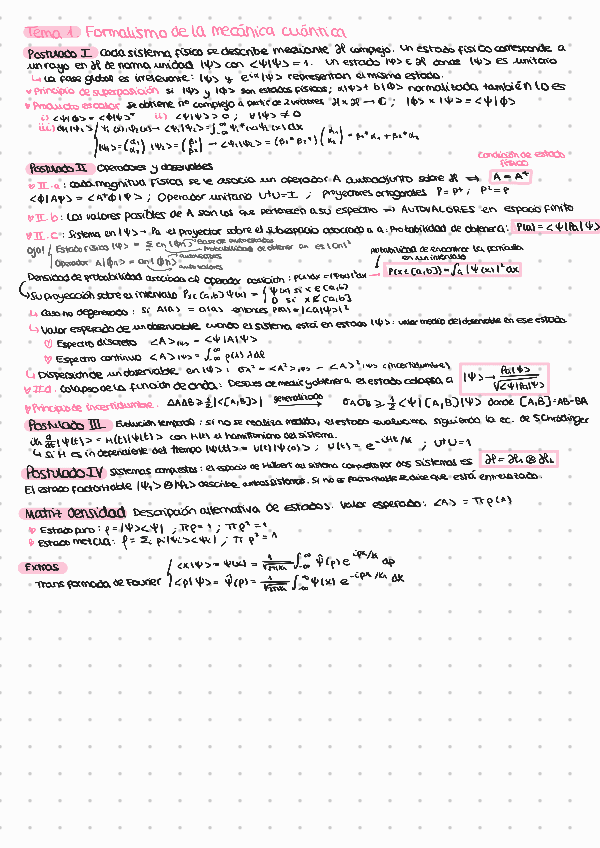 Tema 1 Formalismo de la mecánica cuántica
Postulado I Cada sistema físico se describe mediante ℋ complejo. Un estado físico corresponde a
un rayo en ℋ de norma unidad |ψ> con <ψ|ψ>=1. Un estado |ψ> ∈ ℋ donde |ψ> es unitario
↳ La fase global es irrelevante: |ψ> y e^{iα}|ψ> representan el mismo estado.
♥ Principio de superposición si |ψ> y |φ> son estados físicos; a|ψ> + b|φ> normalizada también lo es
♥ Producto escalar se obtiene nº complejo a partir de 2 vectores ℋ×ℋ → ℂ; |φ> × |ψ> = <ψ|φ>
i) <ψ|φ> = <φ|ψ>* ii) <ψ|ψ> > 0; ∀|ψ> ≠ 0
Postulado II Operadores y observables
Condición de estado
físico
♥ II.a: cada magnitud física se le asocia un operador A autoadjunto sobre ℋ ⟹ A = A⁺
<φ|Aψ> = <A⁺φ|ψ>; Operador unitario U⁺U = I; Proyectores ortogonales P = P⁺; P² = P
♥ II.b: Los valores posibles de A son los que pertenecen a su espectro ⟹ AUTOVALORES en espacio finito
♥ II.c: Sistema en |ψ> → Pa el proyector sobre el subespacio asociado a a: Probabilidad de obtener a: P(a) = <ψ|Pa|ψ>
ojo! Estado físico |ψ> = Σ cn |φn> Base de autoestados
Probabilidad de obtener an es |cn|²
Operador A|φn> = an|φn> autovectores
autovalores
Probabilidad de encontrar la partícula
en un intervalo
Densidad de probabilidad asociada al operador posición: ρ(x)dx = |ψ(x)|²dx → P(x∈[a,b]) = ∫ₐ |ψ(x)|² dx
Su proyección sobre el intervalo P_{x∈[a,b]} ψ(x) = { ψ(x) si x ∈ [a,b]
0 si x ∉ [a,b]
↳ Caso no degenerado: si A|a> = a|a> entonces P(a) = |<a|ψ>|²
↳ Valor esperado de un observable cuando el sistema está en estado |ψ>: valor medio del observable en ese estado
♡ Espectro discreto <A>_{|ψ>} = <ψ|A|ψ>
♡ Espectro continuo <A>_{|ψ>} = ∫ λ ρ(λ) dλ
↳ Dispersión de un observable en |ψ>: σ_A² = <A²>_{|ψ>} - <A>²_{|ψ>} (incertidumbre)
♥ II.d Colapso de la función de onda: Después de medir y obtener a, el estado colapsa a |ψ> → Pa|ψ> / √<ψ|Pa|ψ>
♥ Principio de incertidumbre: ΔAΔB ≥ ½|<[A,B]>| generalizado → σAσB ≥ ½ <ψ|[A,B]|ψ> donde [A,B] = AB-BA
Postulado III Evolución temporal: si no se realiza medida, el estado evoluciona siguiendo la ec. de Schrödinger
iħ d/dt |ψ(t)> = H(t)|ψ(t)> con H(t) el hamiltoniano del sistema.
↳ Si H es independiente del tiempo |ψ(t)> = U(t)|ψ(0)>; U(t) = e^{-iHt/ħ}; U⁺U = 1
Postulado IV Sistemas compuestos: el espacio de Hilbert del sistema compuesto por dos sistemas es ℋ = ℋ₁ ⊗ ℋ₂
El estado factorizable |ψ₁> ⊗ |ψ₂> describe ambos sistemas. Si no es factorizable se dice que está entrelazado.
Matriz densidad Descripción alternativa de estados. Valor esperado: <A> = Tr ρ(A)
♥ Estado puro: ρ = |ψ><ψ|; Tr ρ = 1; Tr ρ² = 1
♥ Estado mezcla: ρ = Σᵢ pᵢ|ψᵢ><ψᵢ|; Tr ρ² < 1
Extras
Transformada de Fourier { <x|ψ> = ψ(x) = 1/√2πħ ∫ ψ̂(p) e^{ipx/ħ} dp
<p|ψ> = ψ̂(p) = 1/√2πħ ∫ ψ(x) e^{-ipx/ħ} dx